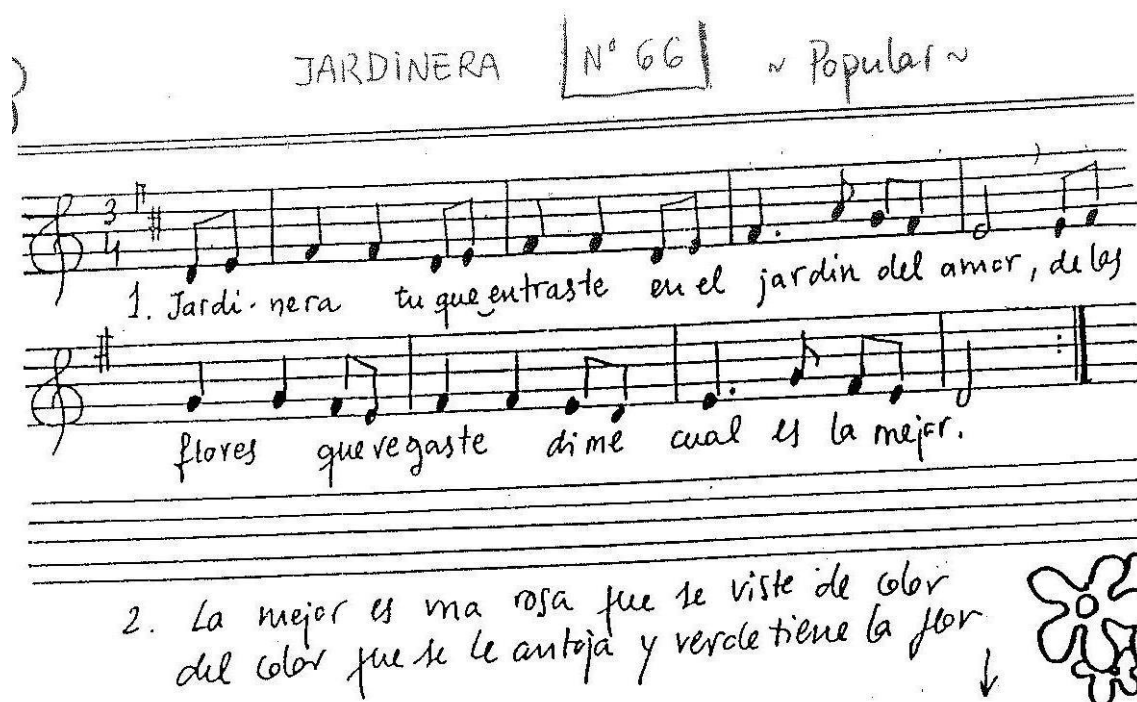 JARDINERA Nº 66 ~ Popular ~
3
4
1. Jardi-nera tu que entraste en el jardin del amor, de las
flores que regaste dime cual es la mejor.
2. La mejor es una rosa que se viste de color
del color que se le antoja y verde tiene la flor